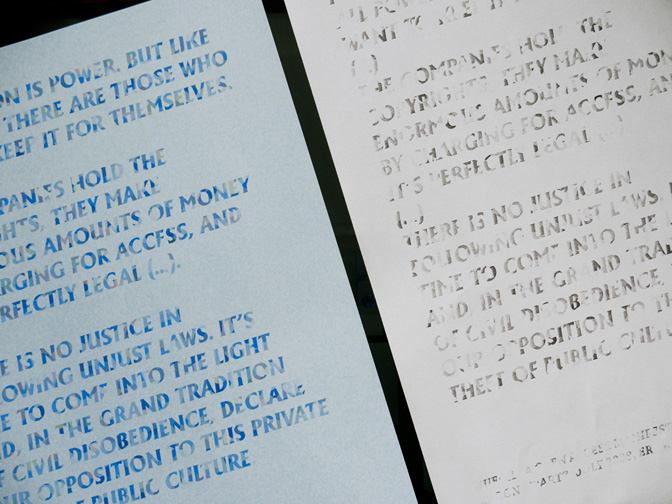 ON IS POWER. BUT LIKE
THERE ARE THOSE WHO
KEEP IT FOR THEMSELVES.
PANIES HOLD THE
GHTS, THEY MAKE
OUS AMOUNTS OF MONEY
ARGING FOR ACCESS, AND
RFECTLY LEGAL (...).
E IS NO JUSTICE IN
OWING UNJUST LAWS. IT'S
E TO COME INTO THE LIGHT
ND, IN THE GRAND TRADITION
F CIVIL DISOBEDIENCE, DECLARE
UR OPPOSITION TO THIS PRIVATE
F PUBLIC CULTURE
WANT TO KEEP IT
(...)
THE COMPANIES HOLD THE
COPYRIGHTS, THEY MAKE
ENORMOUS AMOUNTS OF MON
BY CHARGING FOR ACCESS, AN
IT'S PERFECTLY LEGAL (...).
(...)
THERE IS NO JUSTICE IN
FOLLOWING UNJUST LAWS. I
TIME TO COME INTO THE
AND, IN THE GRAND TRAD
OF CIVIL DISOBEDIENCE,
OUR OPPOSITION TO TH
THEFT OF PUBLIC CULTU